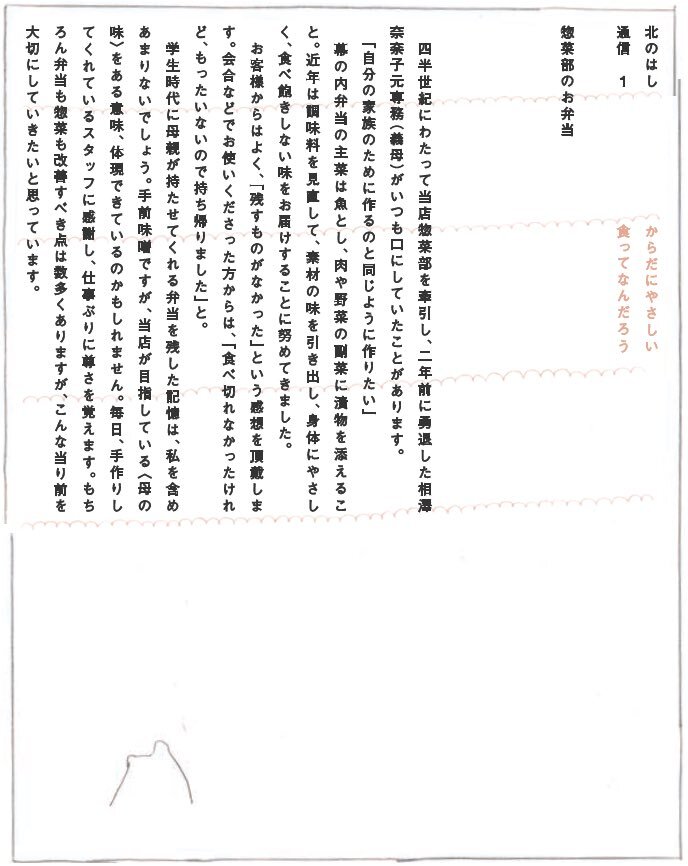 北のはし
通信 1
からだにやさしい
食ってなんだろう
惣菜部のお弁当
四半世紀にわたって当店惣菜部を牽引し、二年前に勇退した相澤
奈奈子元専務（義母）がいつも口にしていたことがあります。
「自分の家族のために作るのと同じように作りたい」
幕の内弁当の主菜は魚とし、肉や野菜の副菜に漬物を添えるこ
と。近年は調味料を見直して、素材の味を引き出し、身体にやさし
く、食べ飽きしない味をお届けすることに努めてきました。
お客様からはよく、「残すものがなかった」という感想を頂戴しま
す。会合などでお使いくださった方からは、「食べ切れなかったけれ
ど、もったいないので持ち帰りました」と。
学生時代に母親が持たせてくれる弁当を残した記憶は、私を含め
あまりないでしょう。手前味噌ですが、当店が目指している〈母の
味〉をある意味、体現できているのかもしれません。毎日、手作りし
てくれているスタッフに感謝し、仕事ぶりに尊さを覚えます。もち
ろん弁当も惣菜も改善すべき点は数多くありますが、こんな当り前を
大切にしていきたいと思っています。